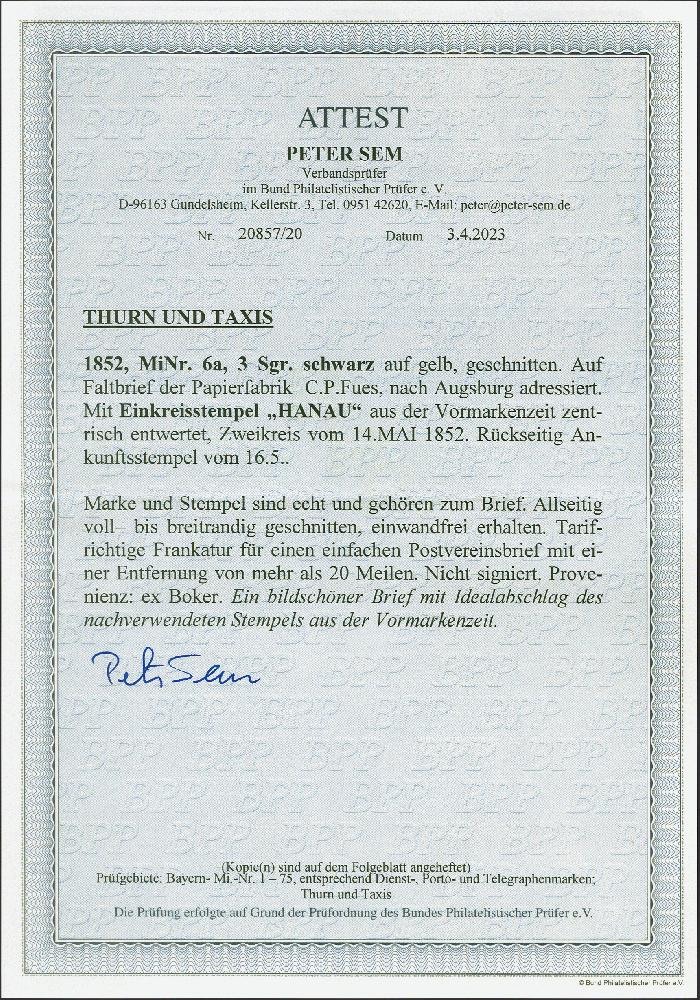 ATTEST
PETER SEM
Verbandsprüfer
im Bund Philatelistischer Prüfer e. V.
D-96163 Gundelsheim, Kellerstr. 3, Tel. 0951 42620, E-Mail: peter@peter-sem.de
Nr. 20857/20 Datum 3.4.2023
THURN UND TAXIS
1852, MiNr. 6a, 3 Sgr. schwarz auf gelb, geschnitten. Auf
Faltbrief der Papierfabrik C.P.Fues, nach Augsburg adressiert.
Mit Einkreisstempel „HANAU“ aus der Vormarkenzeit zent-
risch entwertet, Zweikreis vom 14.MAI 1852. Rückseitig An-
kunftsstempel vom 16.5..
Marke und Stempel sind echt und gehören zum Brief. Allseitig
voll- bis breitrandig geschnitten, einwandfrei erhalten. Tarif-
richtige Frankatur für einen einfachen Postvereinsbrief mit ei-
ner Entfernung von mehr als 20 Meilen. Nicht signiert. Prove-
nienz: ex Boker. Ein bildschöner Brief mit Idealabschlag des
nachverwendeten Stempels aus der Vormarkenzeit.
Peter Sem
(Kopie(n) sind auf dem Folgeblatt angeheftet)
Prüfgebiete: Bayern- Mi.-Nr. 1 – 75, entsprechend Dienst-, Porto- und Telegraphenmarken;
Thurn und Taxis
Die Prüfung erfolgte auf Grund der Prüfordnung des Bundes Philatelistischer Prüfer e.V.
© Bund Philatelistischer Prüfer e.V.